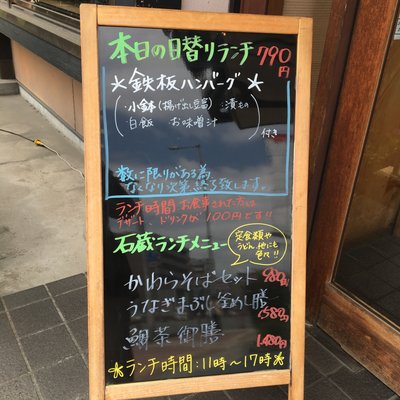 本日の日替りランチ 790円
★鉄板ハンバーグ★
・小鉢(揚げ出し豆腐) ・漬もの
白飯 お味噌汁 付き
数に限りがある為
なくなり次第終了致します。
ランチ時間お食事された方は
デザート、ドリンクが100円です!!
石蔵ランチメニュー
定食類や
うどん他にも
色々!!
かわらそばセット 980円
うなぎまぶし釜めし膳 1,580円
鯛茶御膳 1,480円
★ランチ時間:11時〜17時★